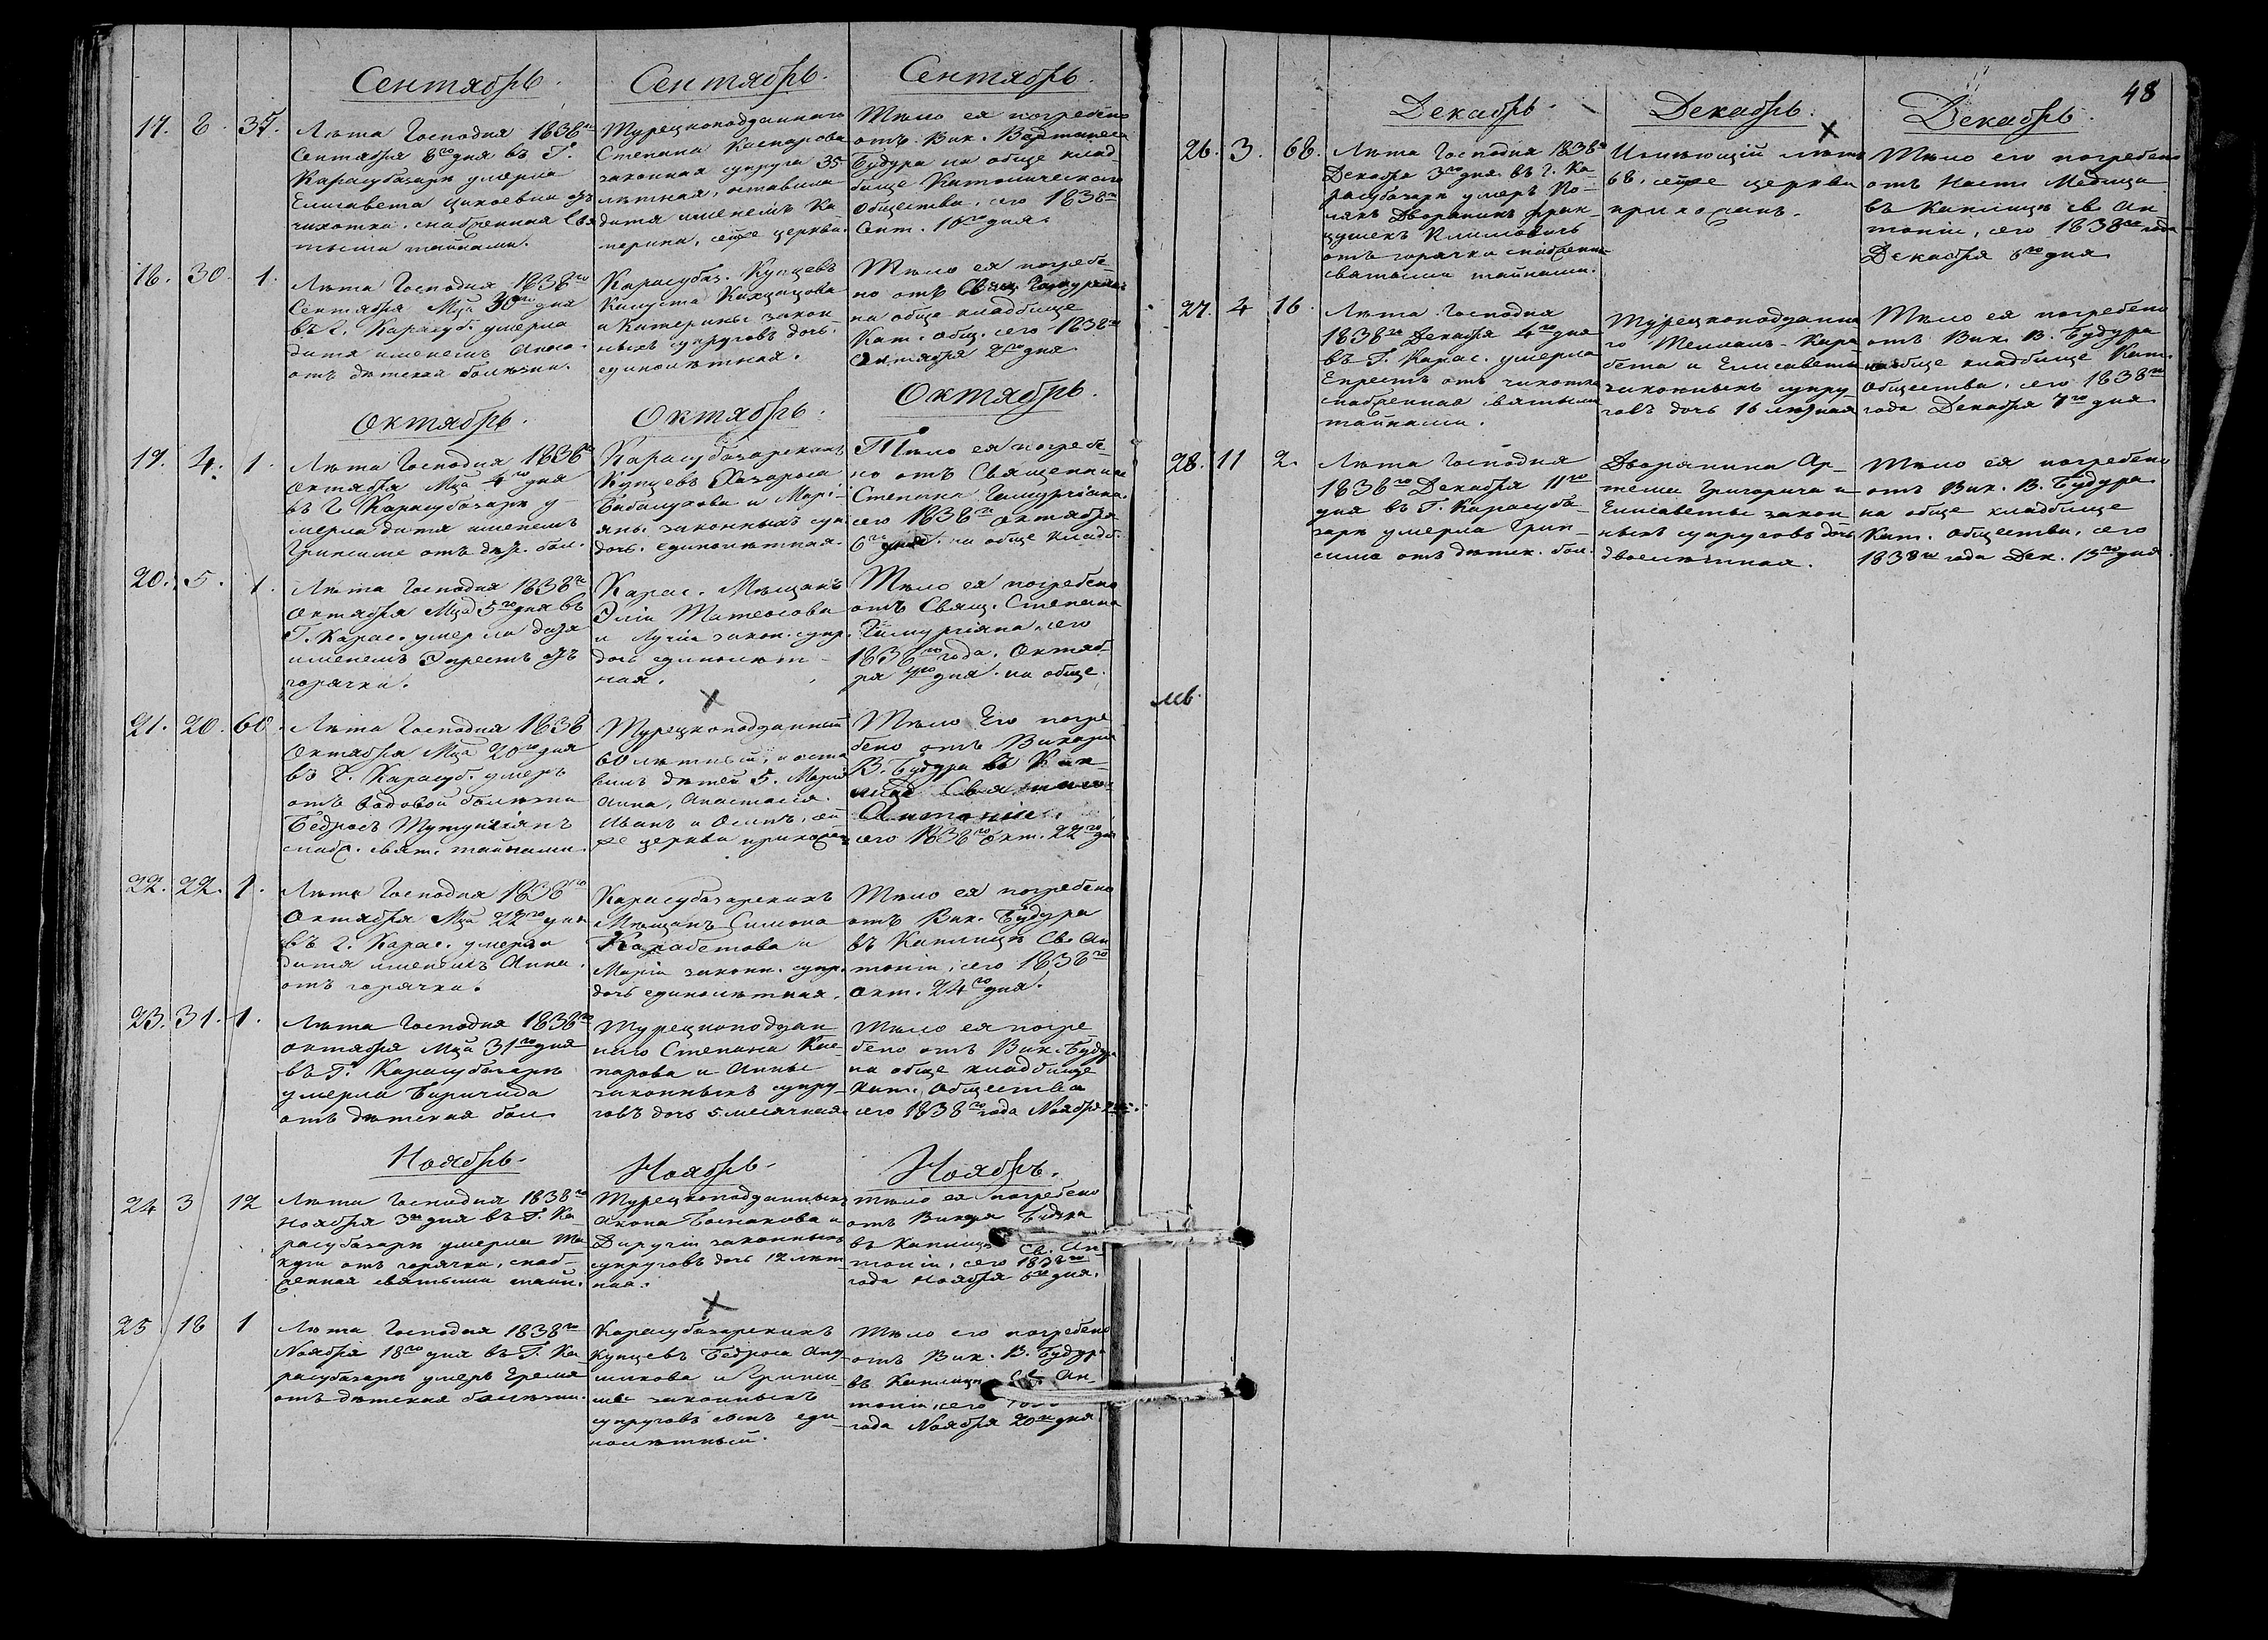 Сентябрь.
17. 8. 35.
Лѣта Господня 1838го
Сентября 8го дня въ Г.
Карасубазарѣ умерла
Елисавета
чихотки, снабженная Свя
тыми тайнами.
Сентябрь.
Турецкоподданнаго
Степана Каспарова
законная супруга 35
лѣтная, оставила
дитя именемъ Ка
терина, сейже церкви.
Сентябрь.
Тѣло ея погребено
отъ Вик. Вартанеса
Будура на обще клад
бище Католическаго
Общества, сего 1838го
Сент. 10го дня.
18. 30. 1.
Лѣта Господня 1838го
Сентября Мца 30го дня
въ Г. Карасуб. умерла
дитя именемъ
отъ дѣтской болѣзни.
Карасубаз. Купцевъ
и Катерины закон
ныхъ супруговъ дочь
единолѣтная.
Тѣло ея погребе
но отъ Свящ.
на обще кладбище
Кат. общ. сего 1838го
Октября 2го дня
Октябрь.
19. 4. 1.
Лѣта Господня 1838го
Октября Мца 4го дня
въ Г. Карасубазарѣ у
мерла дитя именемъ
Грипсиме отъ дѣт. бол.
Октябрь.
Карасубазарскихъ
Купцевъ Лазароса
и Марі
яны законныхъ суп
дочь единолѣтная.
Октябрь.
Тѣло ея погребе
но отъ Священника
Степана
сего 1838го Октября
6го дня на обще кладб.
20. 5. 1.
Лѣта Господня 1838го
Октября Мца 5го дня въ
Г. Карас. умерла дитя
именемъ Эпрестъ отъ
горячки.
Карас. Мѣщанъ
Элія Матеосова
и Лучіи закон. супр.
дочь единолѣт
ная.
Тѣло ея погребено
отъ Свящ. Степана
сего
1838го года. Октяб
ря 7го дня на обще.
21. 20. 60.
Лѣта Господня 1838
Октября Мца 20го дня
въ Г. Карасуб. умеръ
отъ водовой болѣзни
Бедросъ
снабж. свят. тайнами.
Турецкоподданный
60 лѣтный, и оста
вилъ дѣтей 5. Марія
Анна, Анастасія,
Иванъ и Осипъ, сей
же церкви прихожан
Тѣло Его погре
бено отъ Викарія
В. Будура въ Кап
лицѣ Святаго
Антоніи,
сего 1838го Окт. 22го дня
22. 22. 1.
Лѣта Господня 1838го
Октября Мца 22го дня
въ Г. Карас. умерла
дитя именемъ Анна
отъ горячки.
Карасубазарскихъ
Мѣщанъ Симона
Карабетова и
Маріи законн. супр.
дочь единолѣтная.
Тѣло ея погребено
отъ Вик. Будура
въ Каплицѣ Св. Ан
тоніи, сего 1838го
Окт. 24го дня.
23. 31. 1.
Лѣта Господня 1838го
Октября Мца 31го дня
въ Г. Карасубазарѣ
умерла
отъ дѣтской бол.
Турецкоподдан
наго Степана Кас
парова и Анны
законныхъ супру
говъ дочь 5 месячная
Тѣло ея погре
бено отъ Вик. Будура
на обще кладбище
Кат. Общества
сего 1838го года Ноября
Ноябрь.
24 3 12
Лѣта Господня 1838го
Ноября 3го дня въ Г. Ка
расубазарѣ умерла
отъ горячки, снаб
женная святыми тайн.
Ноябрь.
Турецкоподданныхъ
и
законныхъ
супруговъ дочь 12 лѣт
ная.
Ноябрь.
Тѣло ея погребено
отъ Викарія Будура
въ Каплицѣ Св. Ан
тоніи, сего 1838го
года Ноября дня.
25 18 1
Лѣта Господня 1838го
Ноября 18го дня въ Г. Ка
расубазарѣ умеръ Еремія
отъ дѣтской болѣзни.
Карасубазарскихъ
Купцевъ Бедроса
и Грипси
ме законныхъ
супруговъ сынъ еди
нолѣтный.
Тѣло его погребено
отъ Вик. В. Будура
въ Каплицѣ Св. Ан
тоніи, сего
года Ноября 20го дня
48
Декабрь
26. 3. 68.
Лѣта Господня 1838го
Декабря 3го дня въ Г. Ка
расубазарѣ умеръ По
лякъ Дворянинъ Фран
цушекъ Климовичъ
отъ горячки снабжен
святыми тайнами.
Декабрь.
Имѣющій лѣтъ
68. сейже церкви
прихожанъ.
Декабрь.
Тѣло его погребено
отъ Наст. Медици
въ Каплицѣ св Ан
тоніи, сего 1838го года
Декабря дня
27. 4 16.
Лѣта Господня
1838го Декабря 4го дня
въ Г. Карас. умерла
Епрестъ отъ чихотки
снабженная святыми
тайнами.
Турецкоподданна
го Кара
бета и Елисаветы
законныхъ супру
говъ дочь 16 лѣтная
Тѣло ея погребено
отъ Вик. В. Будура
на обще кладбище Кат.
Общества, сего 1838го
года Декабря 7го дня
28. 11 2.
Лѣта Господня
1838го Декабря 11го
дня въ Г. Карасуба
зарѣ умерла Грип
сима отъ дѣтск. бол.
Дворянина Ар
теми Григорича и
Елисаветы закон
ныхъ супруговъ дочь
двоелѣтная.
Тѣло ея погребено
отъ Вик. В. Будура
на обще кладбище
Кат. общества, сего
1838го года Дек. 13го дня.